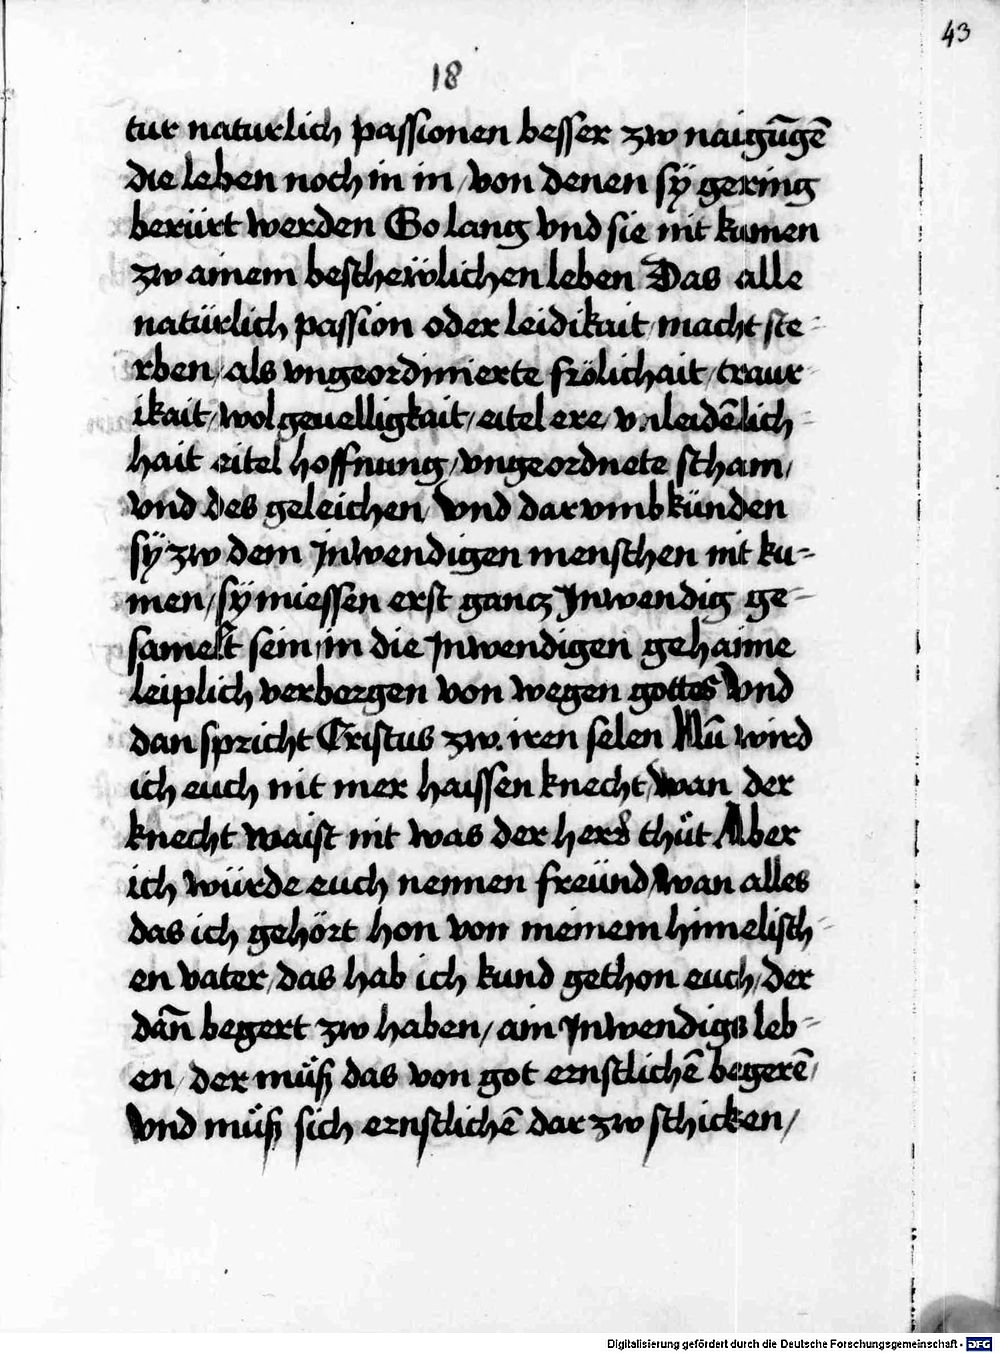 43
18
tur naturlich passionen besser zw naigūgē
die leben noch in in / von denen sÿ gering
berürt werden So lang vnd sie nit kumen
zw ainem bescheẅlichen leben Das alle
natürlich passion oder leidikait / macht ste-
rben / als vngeordinierte frölichait / traur-
ikait / wolgeuelligkait / eitel ere / vnleidēlich-
hait eitel hoffnung / vngeordnete scham /
vnd des geleichen / vnd darvmb künden
sÿ zw dem Jnwendigen menschen nit ku-
men / sÿ miessen erst gancz Jnwendig ge-
samelt sein / in die Jnwendigen gehaime
leiplich verborgen von wegen gottes Vnd
dan spricht Cristus zw. iren selen Nū wird
ich euch nit mer haissen knecht / wan der
knecht waist nit was der herr thůt Aber
ich würde euch nennen freünd / wan alles
das ich gehört hon von meinem himelisch-
en vater / das hab ich kund gethon euch / der
dan̄ begert zw haben / ain Jnwendigs leb-
en / der můß das von got ernstlichē begerē /
Vnd můß sich ernstlichē dar zw schicken /
Digitalisierung gefördert durch die Deutsche Forschungsgemeinschaft - DFG